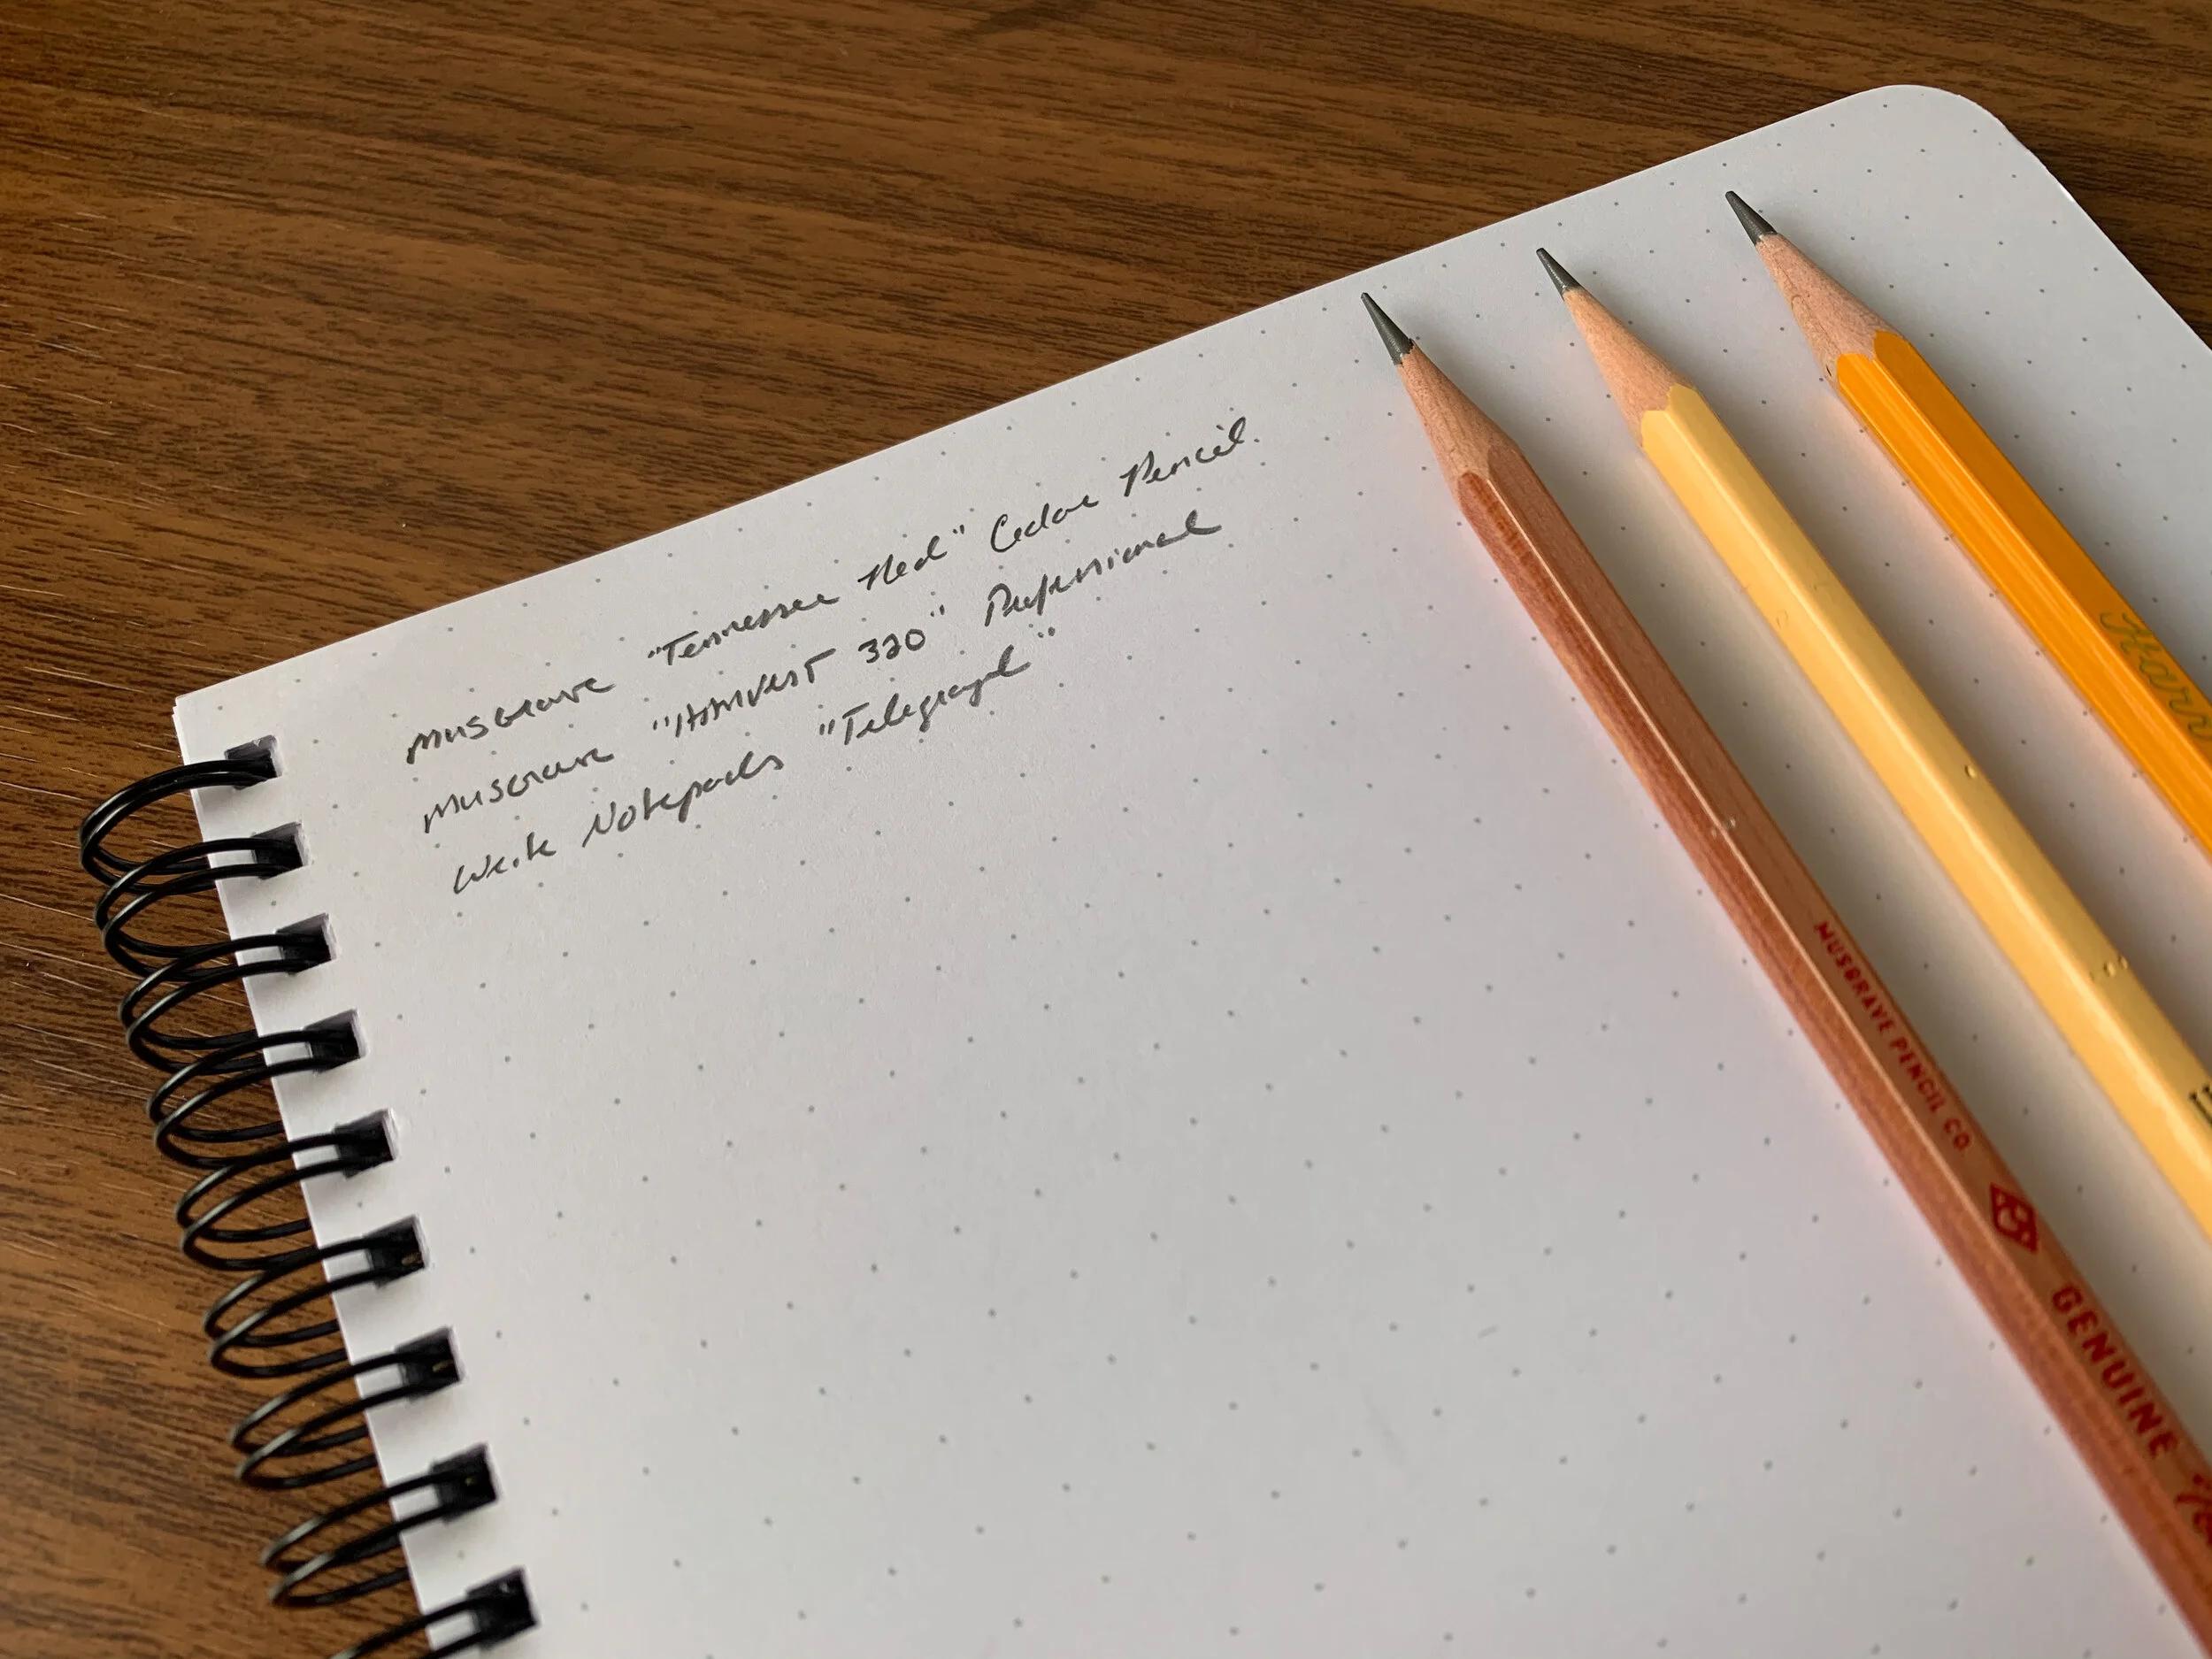 Musgrave "Tennessee Red" Cedar Pencil
Musgrave "HARVEST 320" Professional
Write Notepads "Telegraph"
MUSGRAVE PENCIL CO
GENUINE
Harv